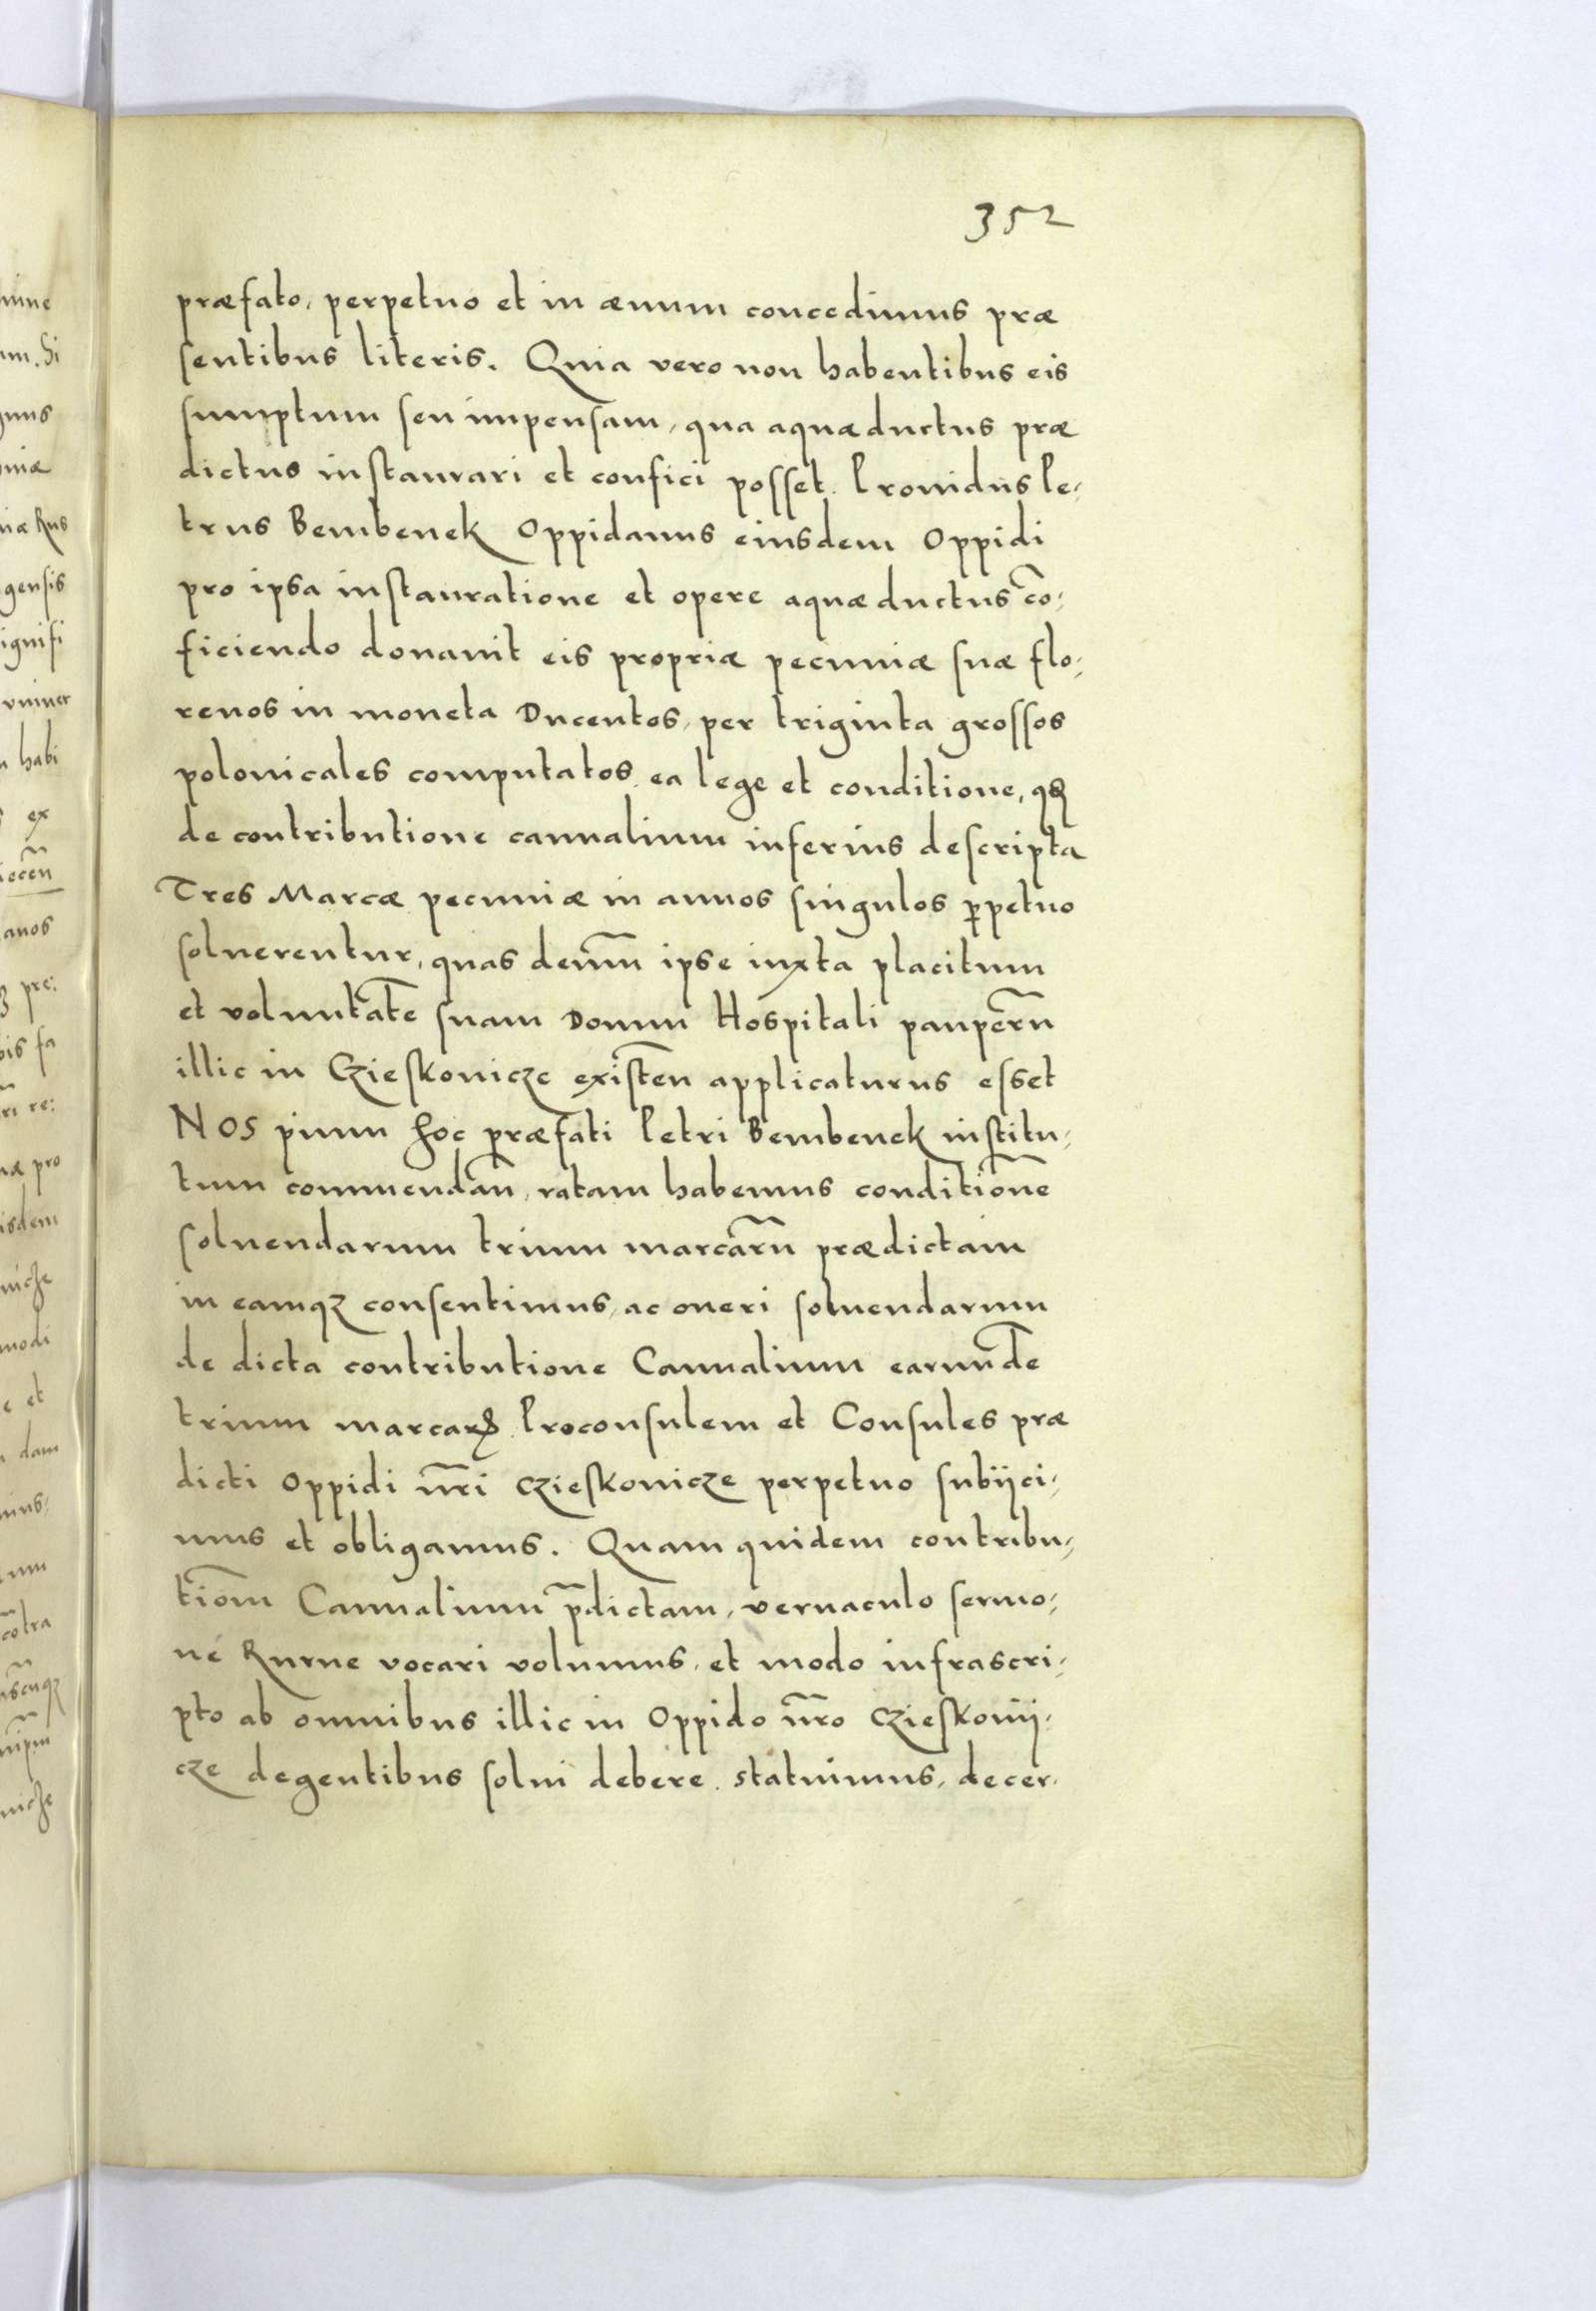 352
præfato, perpetuo et in æuum concedimus præ
sentibus literis. Quia vero non habentibus eis
sumptum seu impensam, qua aquæductus præ
dictus instaurari et confici posset. Prouidus Pe¸
trus Bembenek Oppidanus eiusdem Oppidi
pro ipsa instauratione et opere aquæductus cō¸
ficiendo donauit eis propriæ pecuniæ suæ flo¸
renos in moneta Ducentos, per triginta grossos
polonicales computatos, ea lege et conditione, qȝ
de contributione cannalium inferius descripta
Tres Marcæ pecuniæ in annos singulos ꝑpetuo
soluerentur, quas demū ipse iuxta placitum
et voluntatē suam Domui Hospitali pauperū
illic in Czieskonicze existeñ applicaturus esset
NOS pium hoc præfati Petri Bembenek institu¸
tum commendañ, ratam habemus conditionē
soluendarum trium marcarū prædictam
in eamqꝫ consentimus, ac oneri soluendarum
de dicta contributione Cannalium earundē
trium marcarꝝ Proconsulem et Consules præ
dicti Oppidi nr̃i Czieskonicze perpetuo subijci¸
mus et obligamus. Quam quidem contribu¸
tiom̃ Cannalium p̄dictam, vernaculo sermo¸
ne Rurne vocari volumus, et modo infrascri¸
pto ab omnibus illic in Oppido nr̃o Czieskonij¸
cze degentibus solui debere statuimus, decer¸